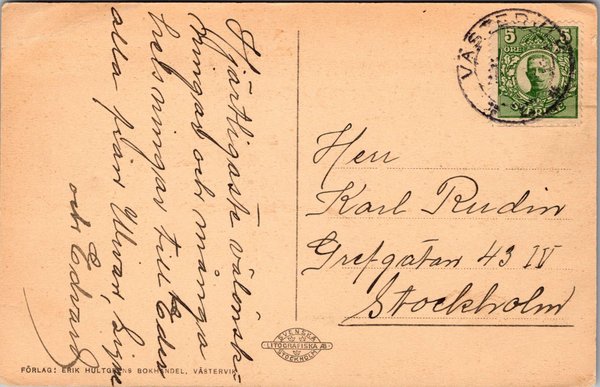 Hjärtligaste välönsk-
ningar och många
helsningar till Eder
alla från Ellivar, Sigge
och Edvard
Herr
Karl Rudin
Grefgatan 43 IV
Stockholm
5 5
ÖRE
VÄSTERVIK
SVENSKA
LITOGRAFISKA AB
STOCKHOLM
FÖRLAG: ERIK HULTGRENS BOKHANDEL, VÄSTERVIK